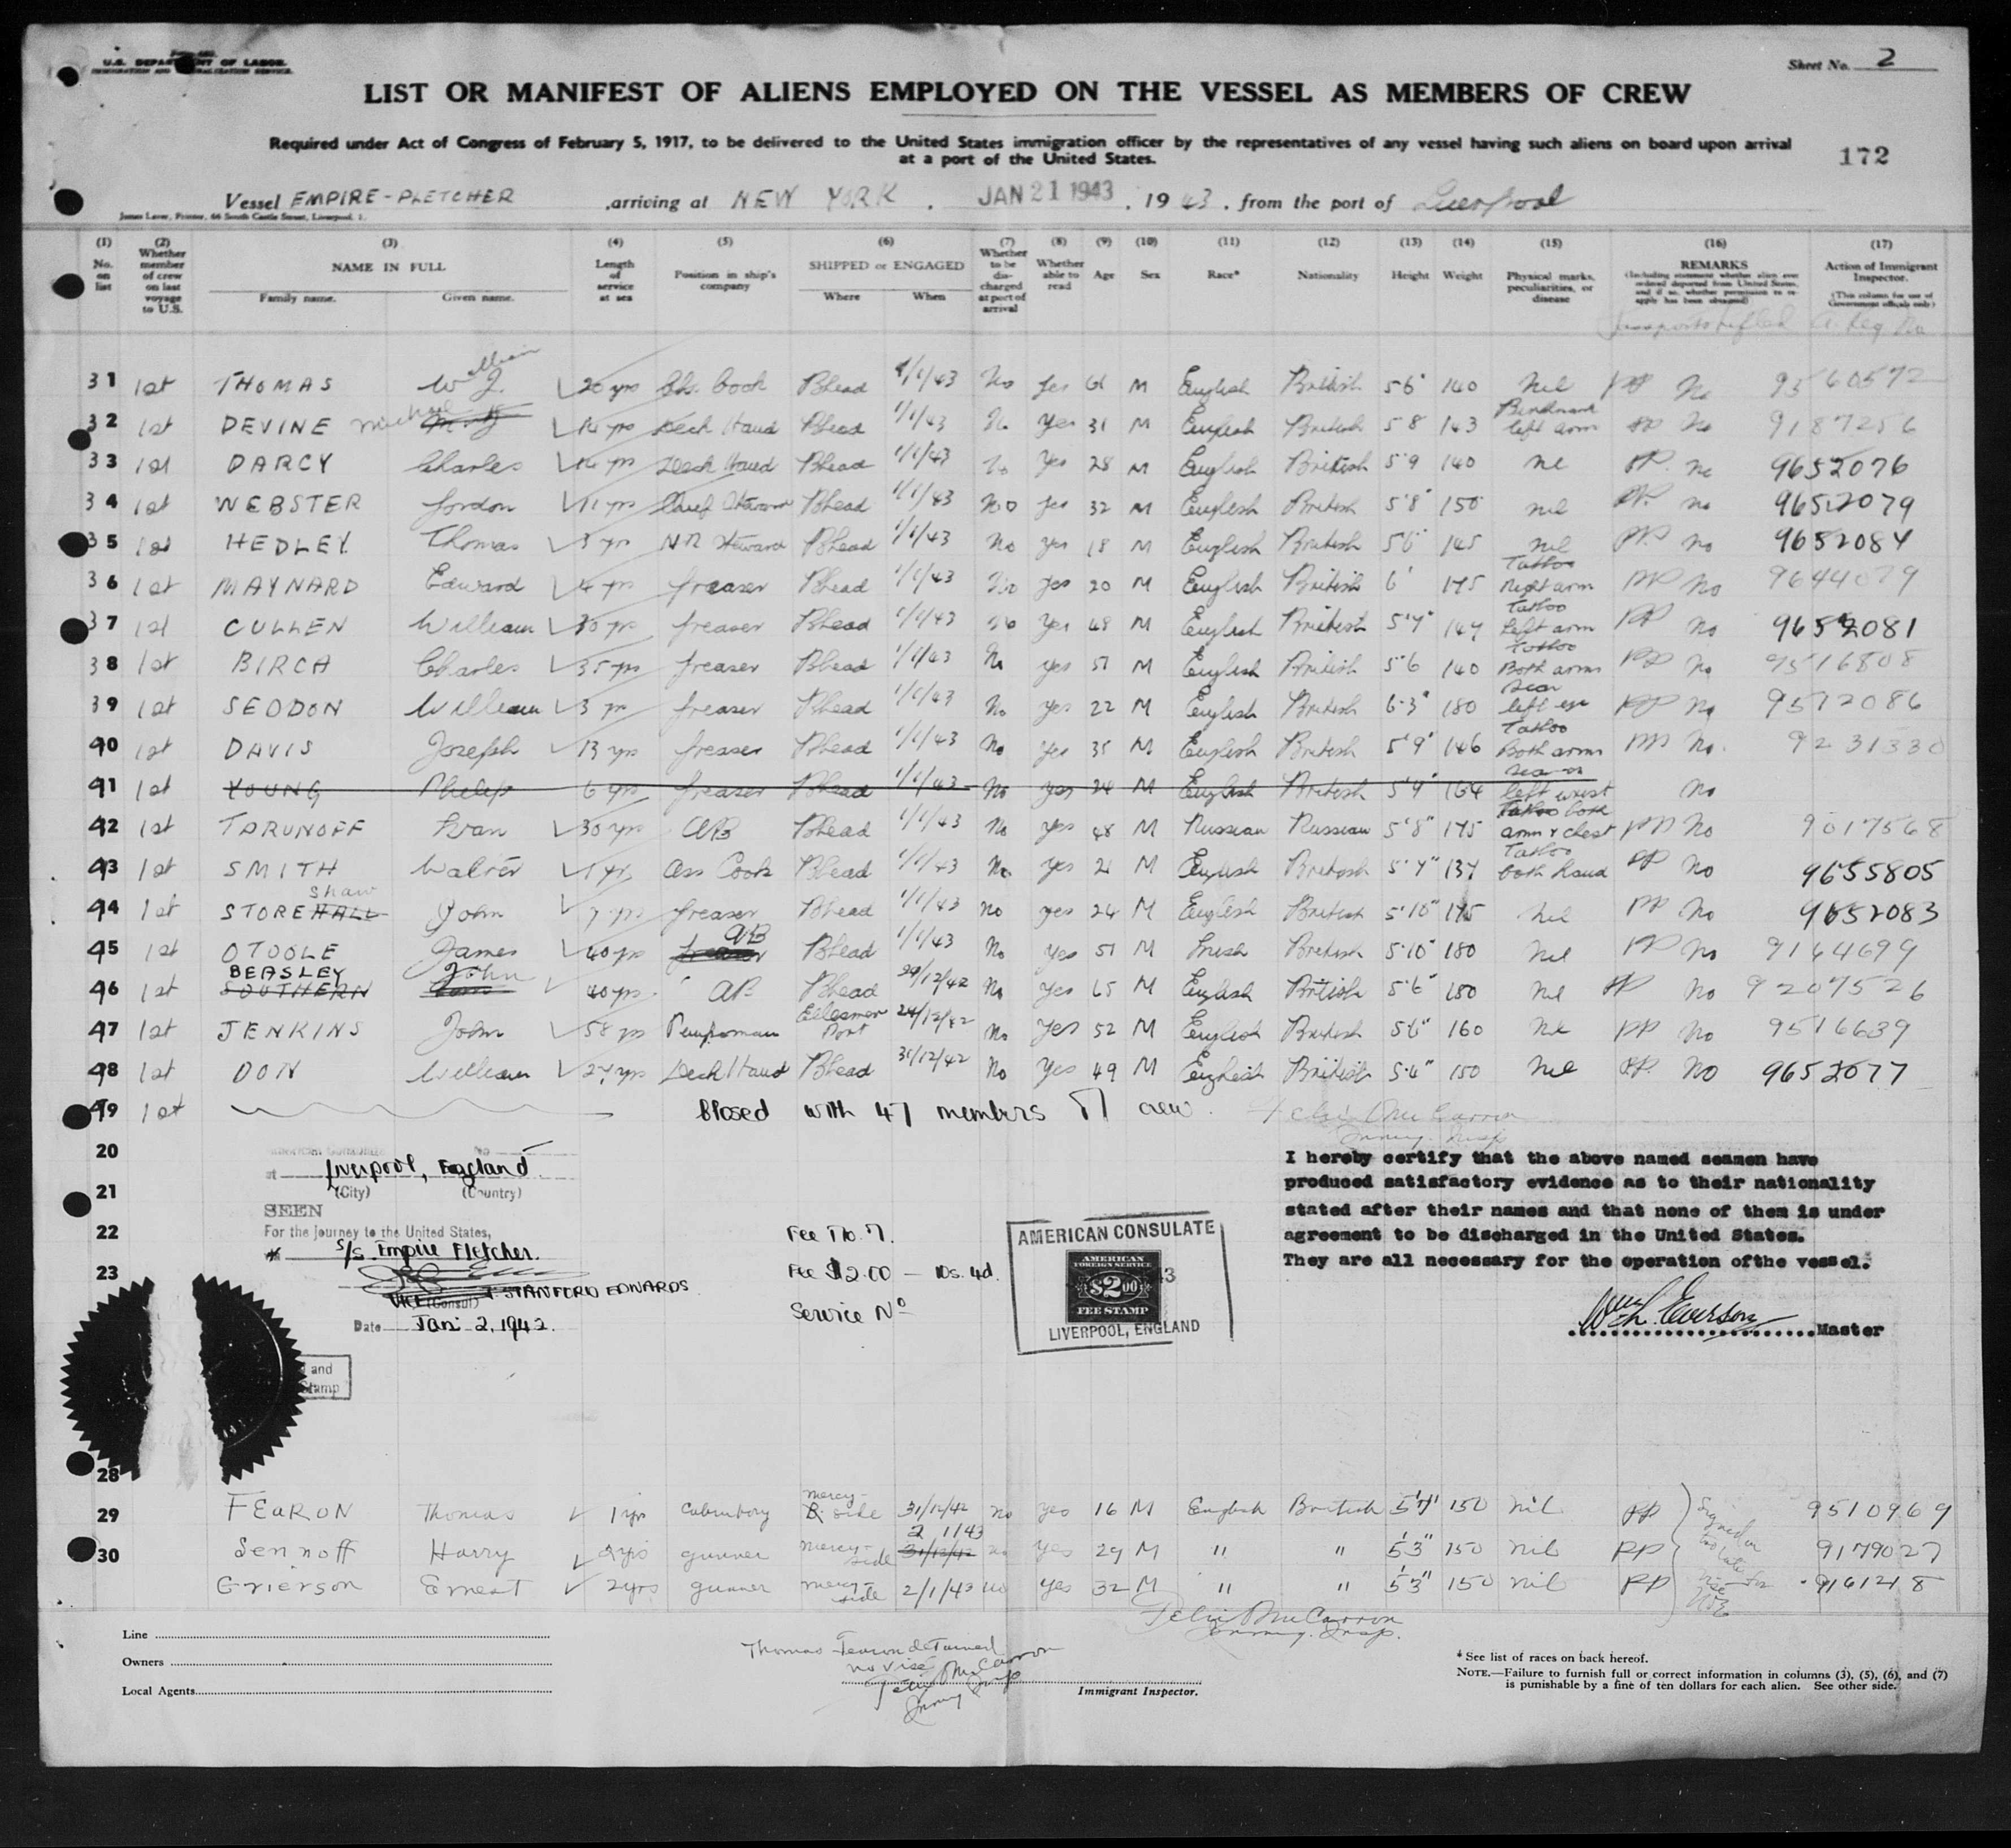 U.S. DEPARTMENT OF LABOR
IMMIGRATION AND NATURALIZATION SERVICE
Sheet No. 2
LIST OR MANIFEST OF ALIENS EMPLOYED ON THE VESSEL AS MEMBERS OF CREW
Required under Act of Congress of February 5, 1917, to be delivered to the United States immigration officer by the representatives of any vessel having such aliens on board upon arrival
at a port of the United States.
172
Vessel EMPIRE-FLETCHER arriving at NEW YORK. JAN 21 1943, 1943, from the port of Liverpool
James Laver, Printer, 66 South Castle Street, Liverpool, 1.
(1) No. on list
(2) Whether member of crew on last voyage to U.S.
(3) NAME IN FULL Family name. Given name.
(4) Length of service at sea
(5) Position in ship's company
(6) SHIPPED or ENGAGED Where When
(7) Whether to be discharged at port of arrival
(8) Whether able to read
(9) Age
(10) Sex
(11) Race*
(12) Nationality
(13) Height
(14) Weight
(15) Physical marks, peculiarities, or disease
(16) REMARKS (Including statement whether alien ever ordered deported from United States, and if so, whether permission to re-apply has been obtained)
(17) Action of Immigrant Inspector. (This column for use of Government officials only)
31 1st THOMAS William J. 20 yrs Cook Bhead 1/1/43 No Yes 61 M English British 5'6" 140 Nil PP No 9560572
32 1st DEVINE Michael 14 yrs Deck Hand Bhead 1/1/43 No Yes 31 M English British 5'8 143 Birthmark left arm PP No 9187256
33 1st DARCY Charles 14 yrs Deck Hand Bhead 1/1/43 No Yes 28 M English British 5'9 140 nil PP. no 9652076
34 1st WEBSTER Gordon 11 yrs Chief Steward Bhead 1/1/43 No Yes 32 M English British 5'8" 150 nil PP. no 9652079
35 1st HEDLEY Thomas 3 yrs Steward Bhead 1/1/43 No Yes 18 M English British 5'6" 145 nil PP. no 9652084
36 1st MAYNARD Edward 4 yrs Greaser Bhead 1/1/43 No Yes 20 M English British 6' 175 Tattoo Right arm PP No 9644079
37 1st CULLEN William 30 yrs Greaser Bhead 1/1/43 No Yes 48 M English British 5'7" 147 Tattoo Left arm PP No 9652081
38 1st BIRCH Charles 35 yrs Greaser Bhead 1/1/43 No Yes 51 M English British 5'6 140 Tattoo Both arms PP No 9516808
39 1st SEDDON William 3 yrs Greaser Bhead 1/1/43 No Yes 22 M English British 6'3" 180 Scar left eye PP No 9512086
40 1st DAVIS Joseph 13 yrs Greaser Bhead 1/1/43 No Yes 35 M English British 5'9" 146 Tattoo Both arms PP No. 9231330
41 1st YOUNG Philip 6 yrs Greaser Bhead 1/1/43 No Yes 24 M English British 5'9" 164 Scar on left wrist No
42 1st TARUNOFF Ivan 30 yrs AB Bhead 1/1/43 No Yes 48 M Russian Russian 5'8" 175 Tattoo both arms & chest PP No 9017568
43 1st SMITH Walter 1 yr Ass Cook Bhead 1/1/43 No Yes 21 M English British 5'7" 137 Tattoo both hand PP No 9655805
44 1st STOREHALL Shaw John 7 yrs Greaser Bhead 1/1/43 No Yes 24 M English British 5'10" 175 Nil PP No 9652083
45 1st OTOOLE James 40 yrs AB Bhead 1/1/43 No Yes 51 M Irish British 5'10" 180 Nil PP No 9144699
46 1st SOUTHERN BEASLEY John 40 yrs AB Bhead 29/12/42 No Yes 65 M English British 5'6" 180 Nil PP No 9207526
47 1st JENKINS John 58 yrs Pumpman Ellesmere Port 24/12/42 No Yes 52 M English British 5'6" 160 Nil PP No 9516639
48 1st DON William 27 yrs Deck Hand Bhead 31/12/42 No Yes 49 M English British 5'6" 150 Nil PP. No 9652077
49 1st Closed with 47 members of crew. Felix McCarron
Immig. Insp.
20
American Consulate
at Liverpool, England.
(City) (Country)
21
SEEN
22
For the journey to the United States,
S/S. Empire Fletcher.
23
VICE (Consul) STANFORD EDWARDS.
Date Jan: 2, 1942.
Fee No. 7.
Fee $2.00 — 10s. 4d.
Service No
AMERICAN CONSULATE
AMERICAN
FOREIGN SERVICE
$2.00
FEE STAMP
LIVERPOOL, ENGLAND
I hereby certify that the above named seamen have
produced satisfactory evidence as to their nationality
stated after their names and that none of them is under
agreement to be discharged in the United States.
They are all necessary for the operation ofthe vessel.
Everson
Master
and
Stamp
28
29 FEARON Thomas 1 yrs Mersey-side 31/12/42 no yes 16 M English British 5'7" 150 nil PP 9510969
30 Sennoff Harry 2 yrs gunner Mersey-side 31/12/42 2 1/43 no yes 29 M " " 5'3" 150 nil PP 9179027
Grierson Ernest 2 yrs gunner Mersey-side 2/1/43 no yes 32 M " " 5'3" 150 nil PP 916121 8
Signed on too late
Felix McCarron
Immig. Insp.
Line
Owners
Local Agents
Thomas Fearon detained
no visé
Felix McCarron
Immig Insp
Immigrant Inspector.
* See list of races on back hereof.
NOTE.—Failure to furnish full or correct information in columns (3), (5), (6), and (7)
is punishable by a fine of ten dollars for each alien. See other side.